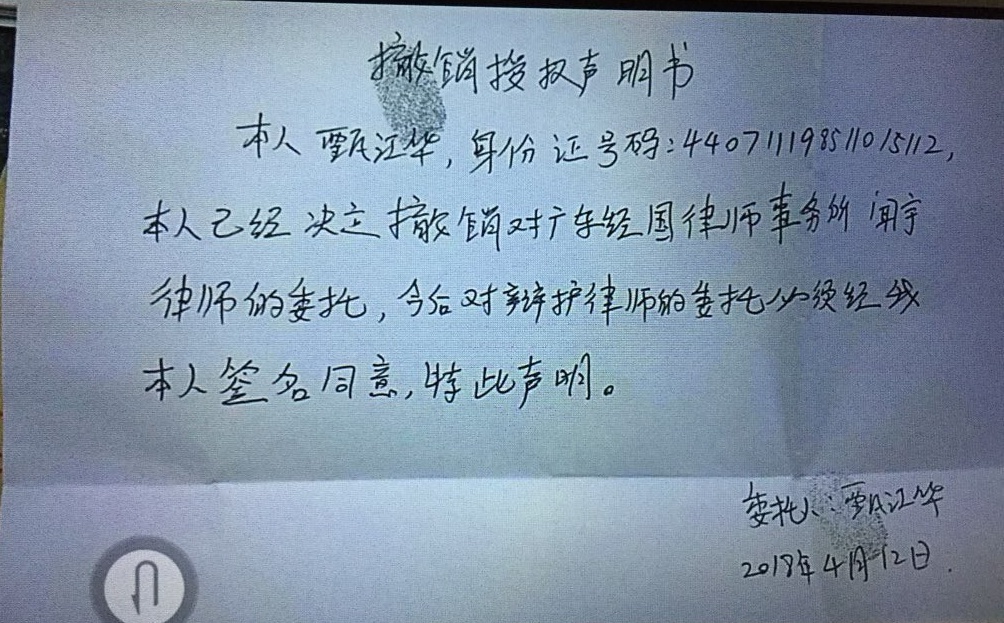 撤销授权声明书
本人甄江华,身份证号码:440711198511015112,
本人已经决定撤销对广东经国律师事务所闻宇
律师的委托,今后对辩护律师的委托必须经我
本人签名同意,特此声明。
委托人:甄江华
2018年4月12日.